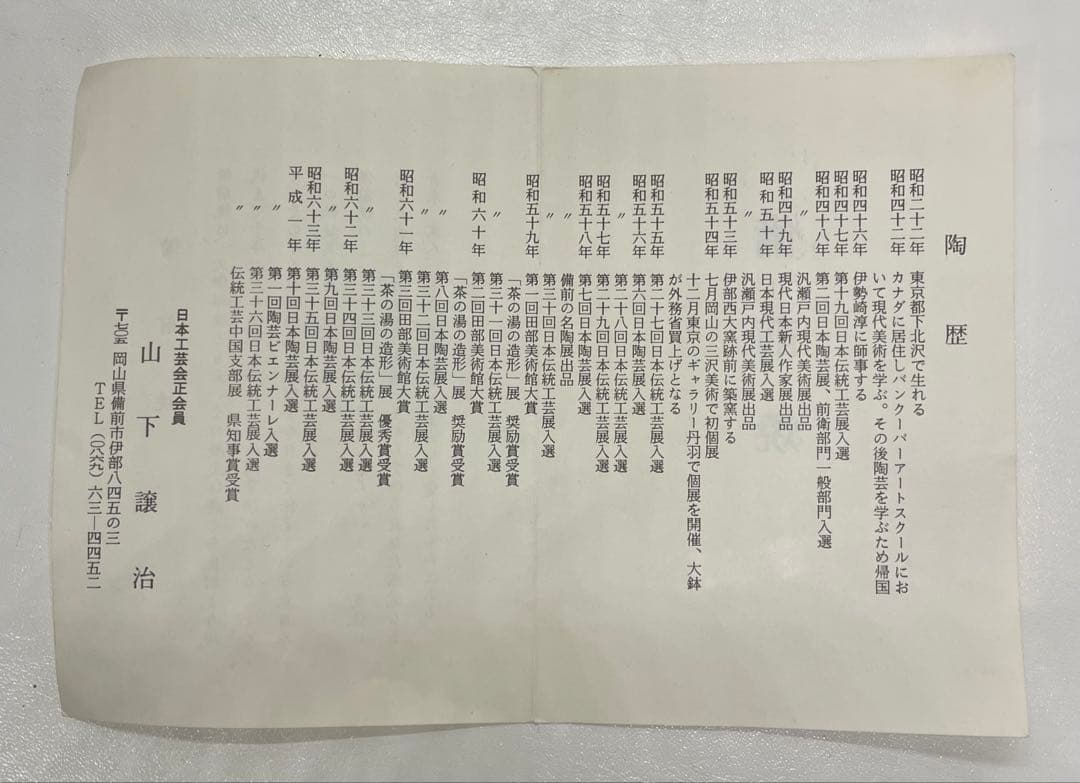 陶歴
昭和二十二年 東京都下北沢で生れる
昭和四十二年 カナダに居住しバンクーバーアートスクールにお
いて現代美術を学ぶ。その後陶芸を学ぶため帰国
昭和四十六年 伊勢崎淳に師事する
昭和四十七年 第十九回日本伝統工芸展入選
昭和四十八年 第二回日本陶芸展、前衛部門一般部門入選
〃 汎瀬戸内現代美術展出品
昭和四十九年 現代日本新人作家展出品
昭和五十年 日本現代工芸展入選
〃 汎瀬戸内現代美術展出品
昭和五十三年 伊部西大窯跡前に築窯する
昭和五十四年 七月岡山の三沢美術で初個展
十二月東京のギャラリー丹羽で個展を開催、大鉢
が外務省買上げとなる
昭和五十五年 第二十七回日本伝統工芸展入選
昭和五十六年 第六回日本陶芸展入選
〃 第二十八回日本伝統工芸展入選
昭和五十七年 第二十九回日本伝統工芸展入選
昭和五十八年 第七回日本陶芸展入選
〃 備前の名陶展出品
〃 第三十回日本伝統工芸展入選
昭和五十九年 第一回田部美術館大賞
「茶の湯の造形」展 奨励賞受賞
〃 第三十一回日本伝統工芸展入選
昭和六十年 第二回田部美術館大賞
「茶の湯の造形」展 奨励賞受賞
〃 第八回日本陶芸展入選
〃 第三十二回日本伝統工芸展入選
昭和六十一年 第三回田部美術館大賞
「茶の湯の造形」展 優秀賞受賞
〃 第三十三回日本伝統工芸展入選
昭和六十二年 第三十四回日本伝統工芸展入選
〃 第九回日本陶芸展入選
昭和六十三年 第三十五回日本伝統工芸展入選
平成一年 第十回日本陶芸展入選
〃 第一回陶芸ビエンナーレ入選
〃 第三十六回日本伝統工芸展入選
〃 伝統工芸中国支部展 県知事賞受賞
日本工芸会正会員
山下譲治
〒七〇五 岡山県備前市伊部八四五の三
TEL(〇八六九)六三―四四五二